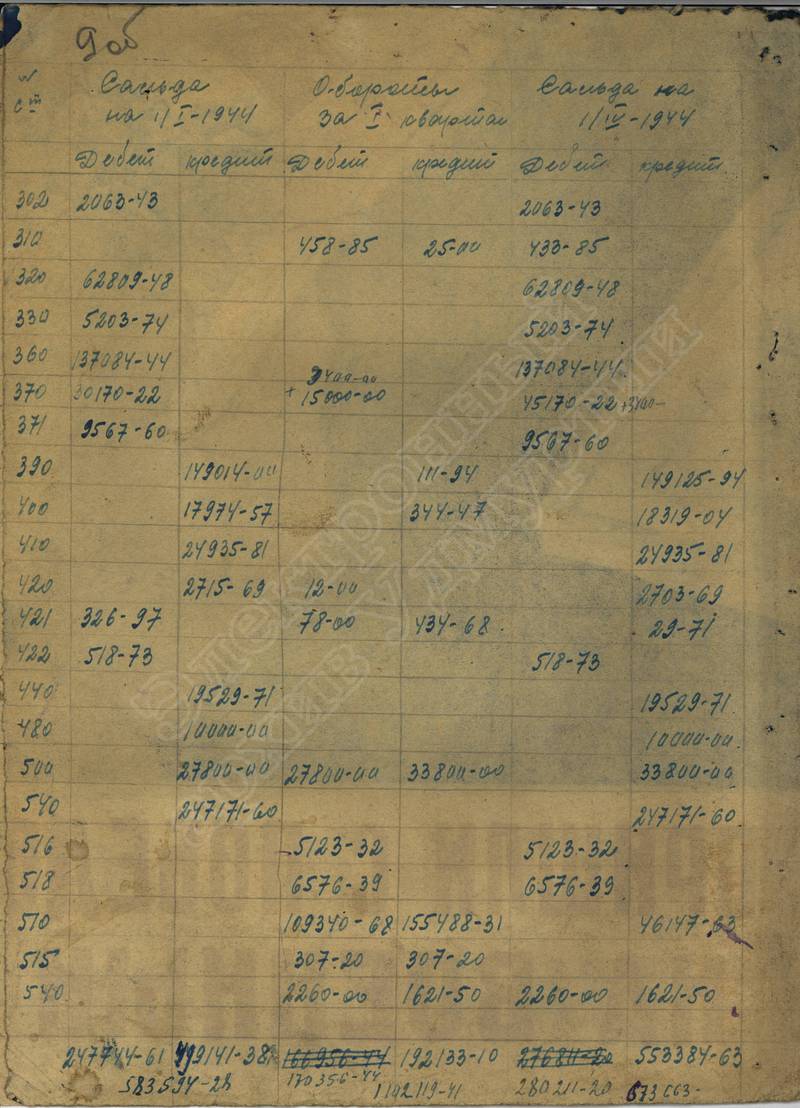 9 об
Сальда Обороты Сальда на
на 1/I-1944 за I квартал 1/IV-1944
№ ст
Дебет кредит Дебет кредит Дебет кредит
302 2063-43 2063-43
310 458-85 25-00 433-85
320 62809-48 62809-48
330 5203-74 5203-74
360 137084-44 137084-44
3400-00
370 30170-22 + 15000-00 45170-22 +3400-
371 9567-60 9567-60
390 149014-00 111-94 149125-94
400 17974-57 344-47 18319-04
410 24935-81 24935-81
420 2715-69 12-00 2703-69
421 326-97 78-00 434-68 29-71
422 518-73 518-73
440 19529-71 19529-71
480 10000-00 10000-00
500 27800-00 27800-00 33800-00 33800-00
540 247171-60 247171-60
516 5123-32 5123-32
518 6576-39 6576-39
510 109340-68 155488-31 46147-63
515 307-20 307-20
540 2260-00 1621-50 2260-00 1621-50
247744-61 499141-38 166956-44 192133-10 276811-20 553384-63
583594-28 170356-44 1102119-41 280211-20